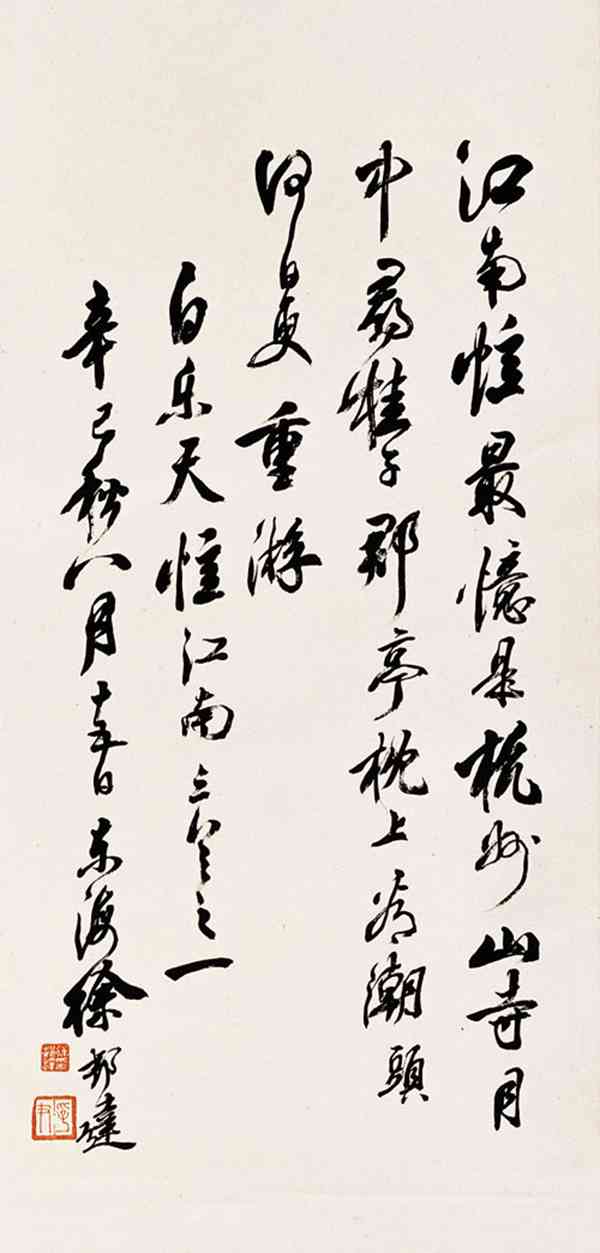 江南憶最憶是杭州山寺月
中尋桂子郡亭枕上看潮頭
何日更重游
白乐天憶江南三之一
辛巳秋八月十五日东海徐邦達